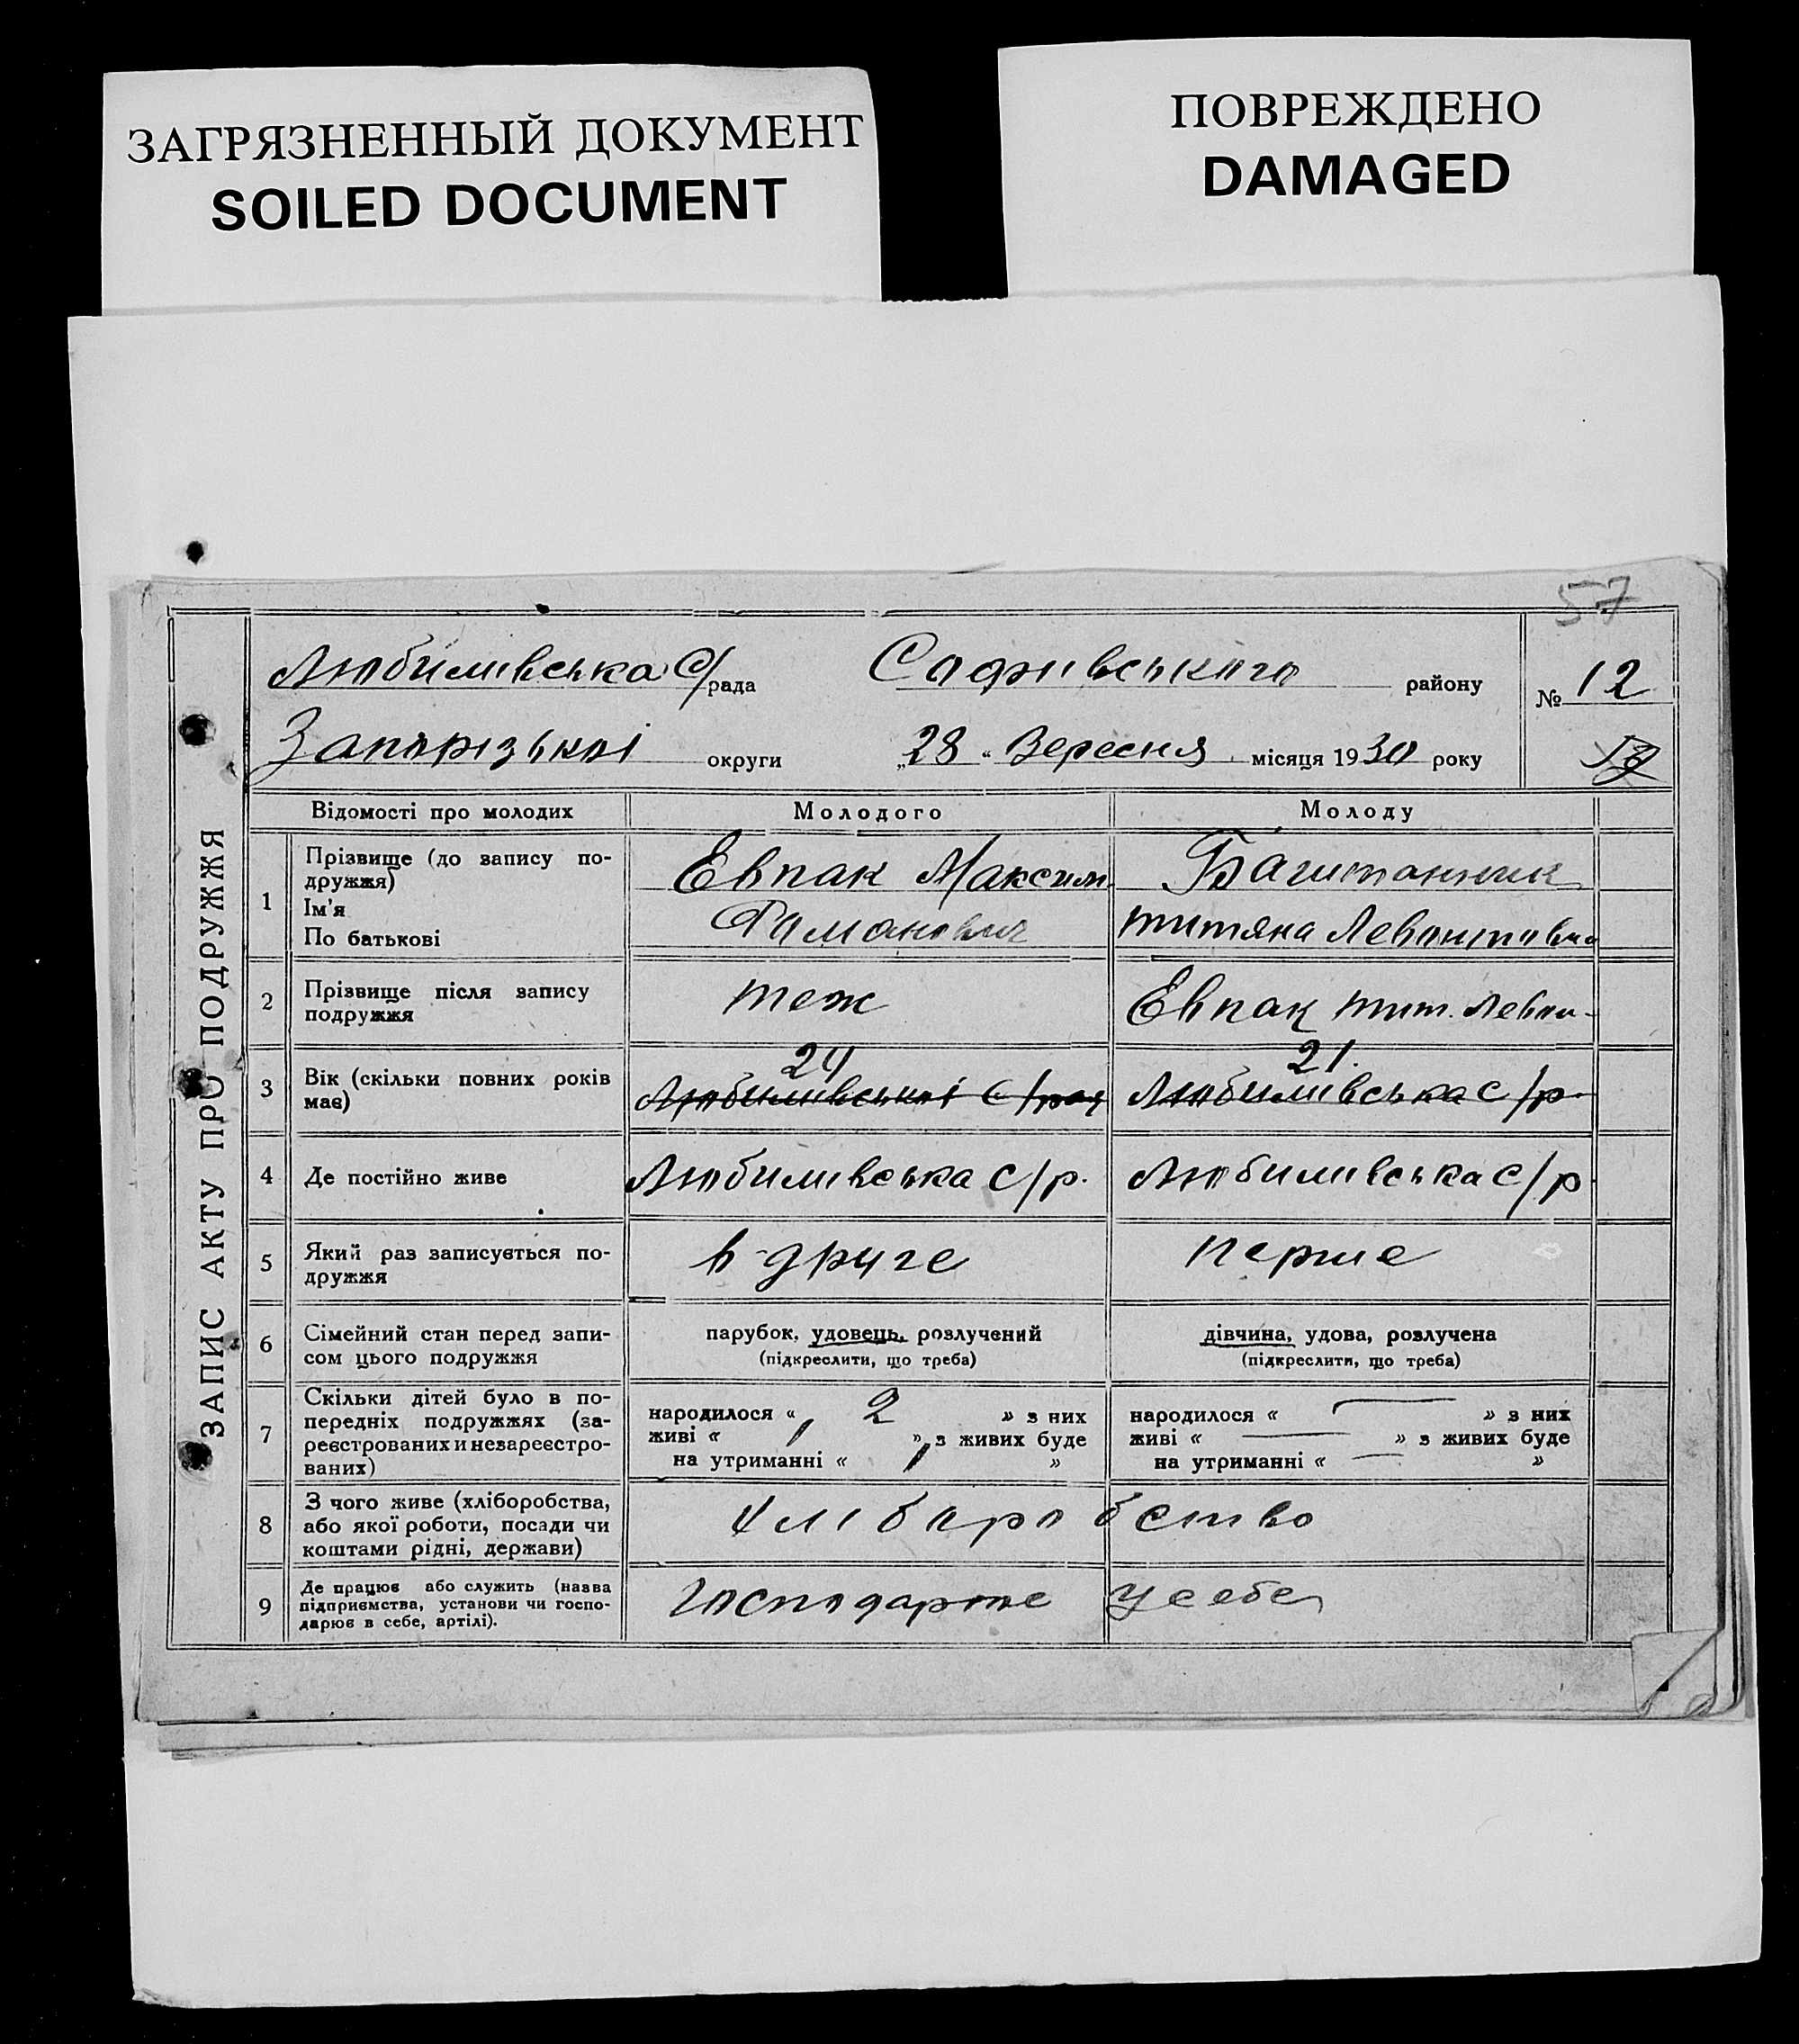 ЗАГРЯЗНЕННЫЙ ДОКУМЕНТ
SOILED DOCUMENT
ПОВРЕЖДЕНО
DAMAGED
57
ЗАПИС АКТУ ПРО ПОДРУЖЖЯ
Любимівська С/рада Софиівського району № 12
Запорізької округи „28“ Вересня місяця 1930 року
Відомості про молодих Молодого Молоду
1 Прізвище (до запису подружжя) Евпак Максим Баштанник
Ім'я
По батькові Романович Титяна Левонтовна
2 Прізвище після запису подружжя теж Евпак Тит. Левон-
3 Вік (скільки повних років має) 24 21.
Любимівської С/рад Любимівська С/р.
4 Де постійно живе Любимівська С/р. Любимівська С/р
5 Який раз записується подружжя в-друге перше
6 Сімейний стан перед записом цього подружжя парубок, удовець, розлучений дівчина, удова, розлучена
(підкреслити, що треба) (підкреслити, що треба)
7 Скільки дітей було в попередніх подружжях (зареєстрованих и незареєстрованих)
народилося « 2 » з них народилося « — » з них
живі « » з живих буде живі « — » з живих буде
на утриманні « » на утриманні « — »
8 З чого живе (хліборобства, або якої роботи, посади чи коштами рідні, держави) Хліборобство
9 Де працює або служить (назва підприємства, установи чи господарює в себе, артілі). Господарює у себе